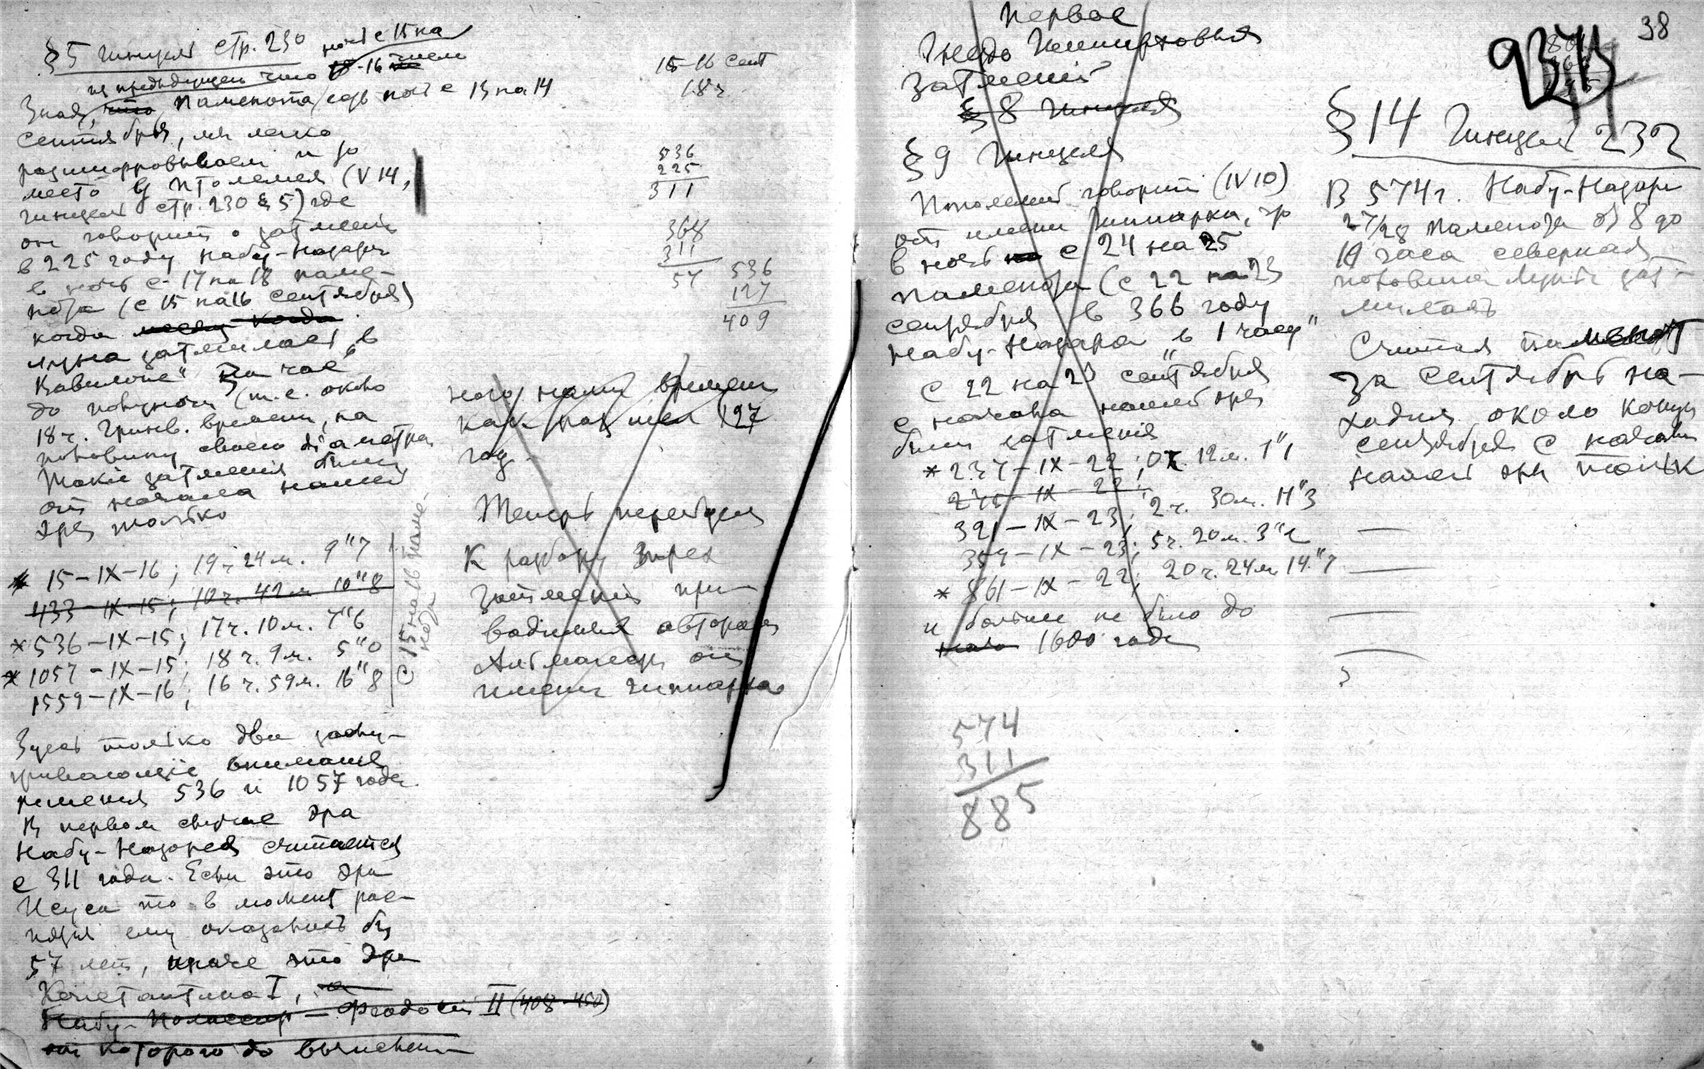 §5 Гинцеля стр. 230 ночь с 15 на
из предыдущего что -16
Зная, что Паменота есть ночь с 13 на 14
сентября, мы легко
расшифровываем и то
место в Птолемея (V 14,
Гинцель стр. 230 § 5) где
он говорит о затмении
в 225 году Набу-Назара
в ночь с 17 на 18 паме-
нота (с 15 на 16 сентября)
когда
луна затмилась, в
Вавилоне" за час
до полуночи (т.е. около
18ч. Гринв. времени, на
половину своего диаметра
Такие затмения были
от начала нашей
эры только
* 15-IX-16; 19ч 24м. 9"7
433-IX-15; 10ч. 42м 10"8
* 536-IX-15; 17ч. 10м. 7"6
* 1057-IX-15; 18ч. 9м. 5"0
1559-IX-16; 16ч. 59м. 16"8
с 15 на 16 паме-
нота
Здесь только два заслу-
живающие внимание
решения 536 и 1057 года.
В первом случае эра
Набу-Назара считается
с 311 года. Если это эра
Исуса то в момент рас-
пятия ему оказалось бы
57 лет, иначе это эра
Константина I, а
Набу-Полассар - Феодосий II (408-450)
от которого до вычислен
15-16 сент
18ч.
536
225
311
368
311
57
536
127
409
ного нами времени
как раз шел 127
год.
Теперь перейдем
к разбору трех
затмений при-
водимых автором
Альмагеста от
имени Гиппарха
Первое
Гнездо Гиппарховых
затмений
§ 8 Гинцеля
§ 9 Гинцеля
Птолемей говорит (IV 10)
от имени Гиппарха, что
в ночь на с 24 на 25
паменота (с 22 на 23
сентября в 366 году
Набу-Назара в 1 часу"
с 22 на 23 сентября
с начала нашей эры
были затмения
* 237-IX-22; 0ч. 12м. 1"1
-IX-22;
321-IX-23; 2ч. 30м. 11"3
359-IX-23; 5ч. 20м. 3"2
* 861-IX-22; 20ч. 24м 14."7
и больше не было до
1600 года
574
311
885
38
§14 Гинцеля 232
В 574г. Набу-Назара
27/28 паменота от 8 до
10 часа северная
половина луны зат-
милась
Считая паменот
за сентябрь на-
ходим около конца
сентября с начала
нашей эры только
?